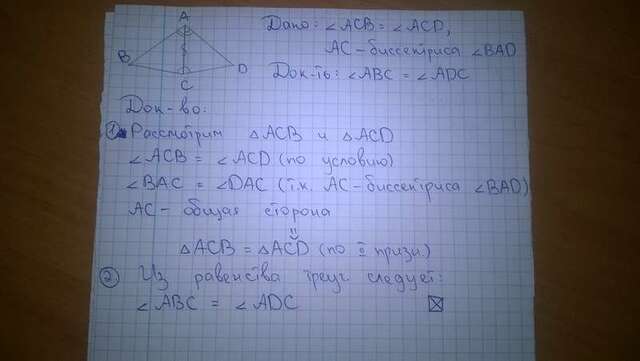 A
B
D
C
Дано: ∠ACB = ∠ACD,
AC - биссектриса ∠BAD
Док-ть: ∠ABC = ∠ADC
Док-во:
① Рассмотрим △ACB и △ACD
∠ACB = ∠ACD (по условию)
∠BAC = ∠DAC (т.к. AC - биссектриса ∠BAD)
AC - общая сторона
⇓
△ACB = △ACD (по II призн)
② Из равенства треуг следует:
∠ABC = ∠ADC